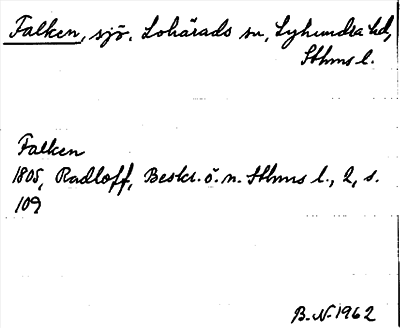 Falken, sjö. Lohärads sn, Lyhundra hd,
Sthms l.
Falken
1805, Radloff, Beskr. ö. n. Sthms l., 2, s.
109
B.N. 1962